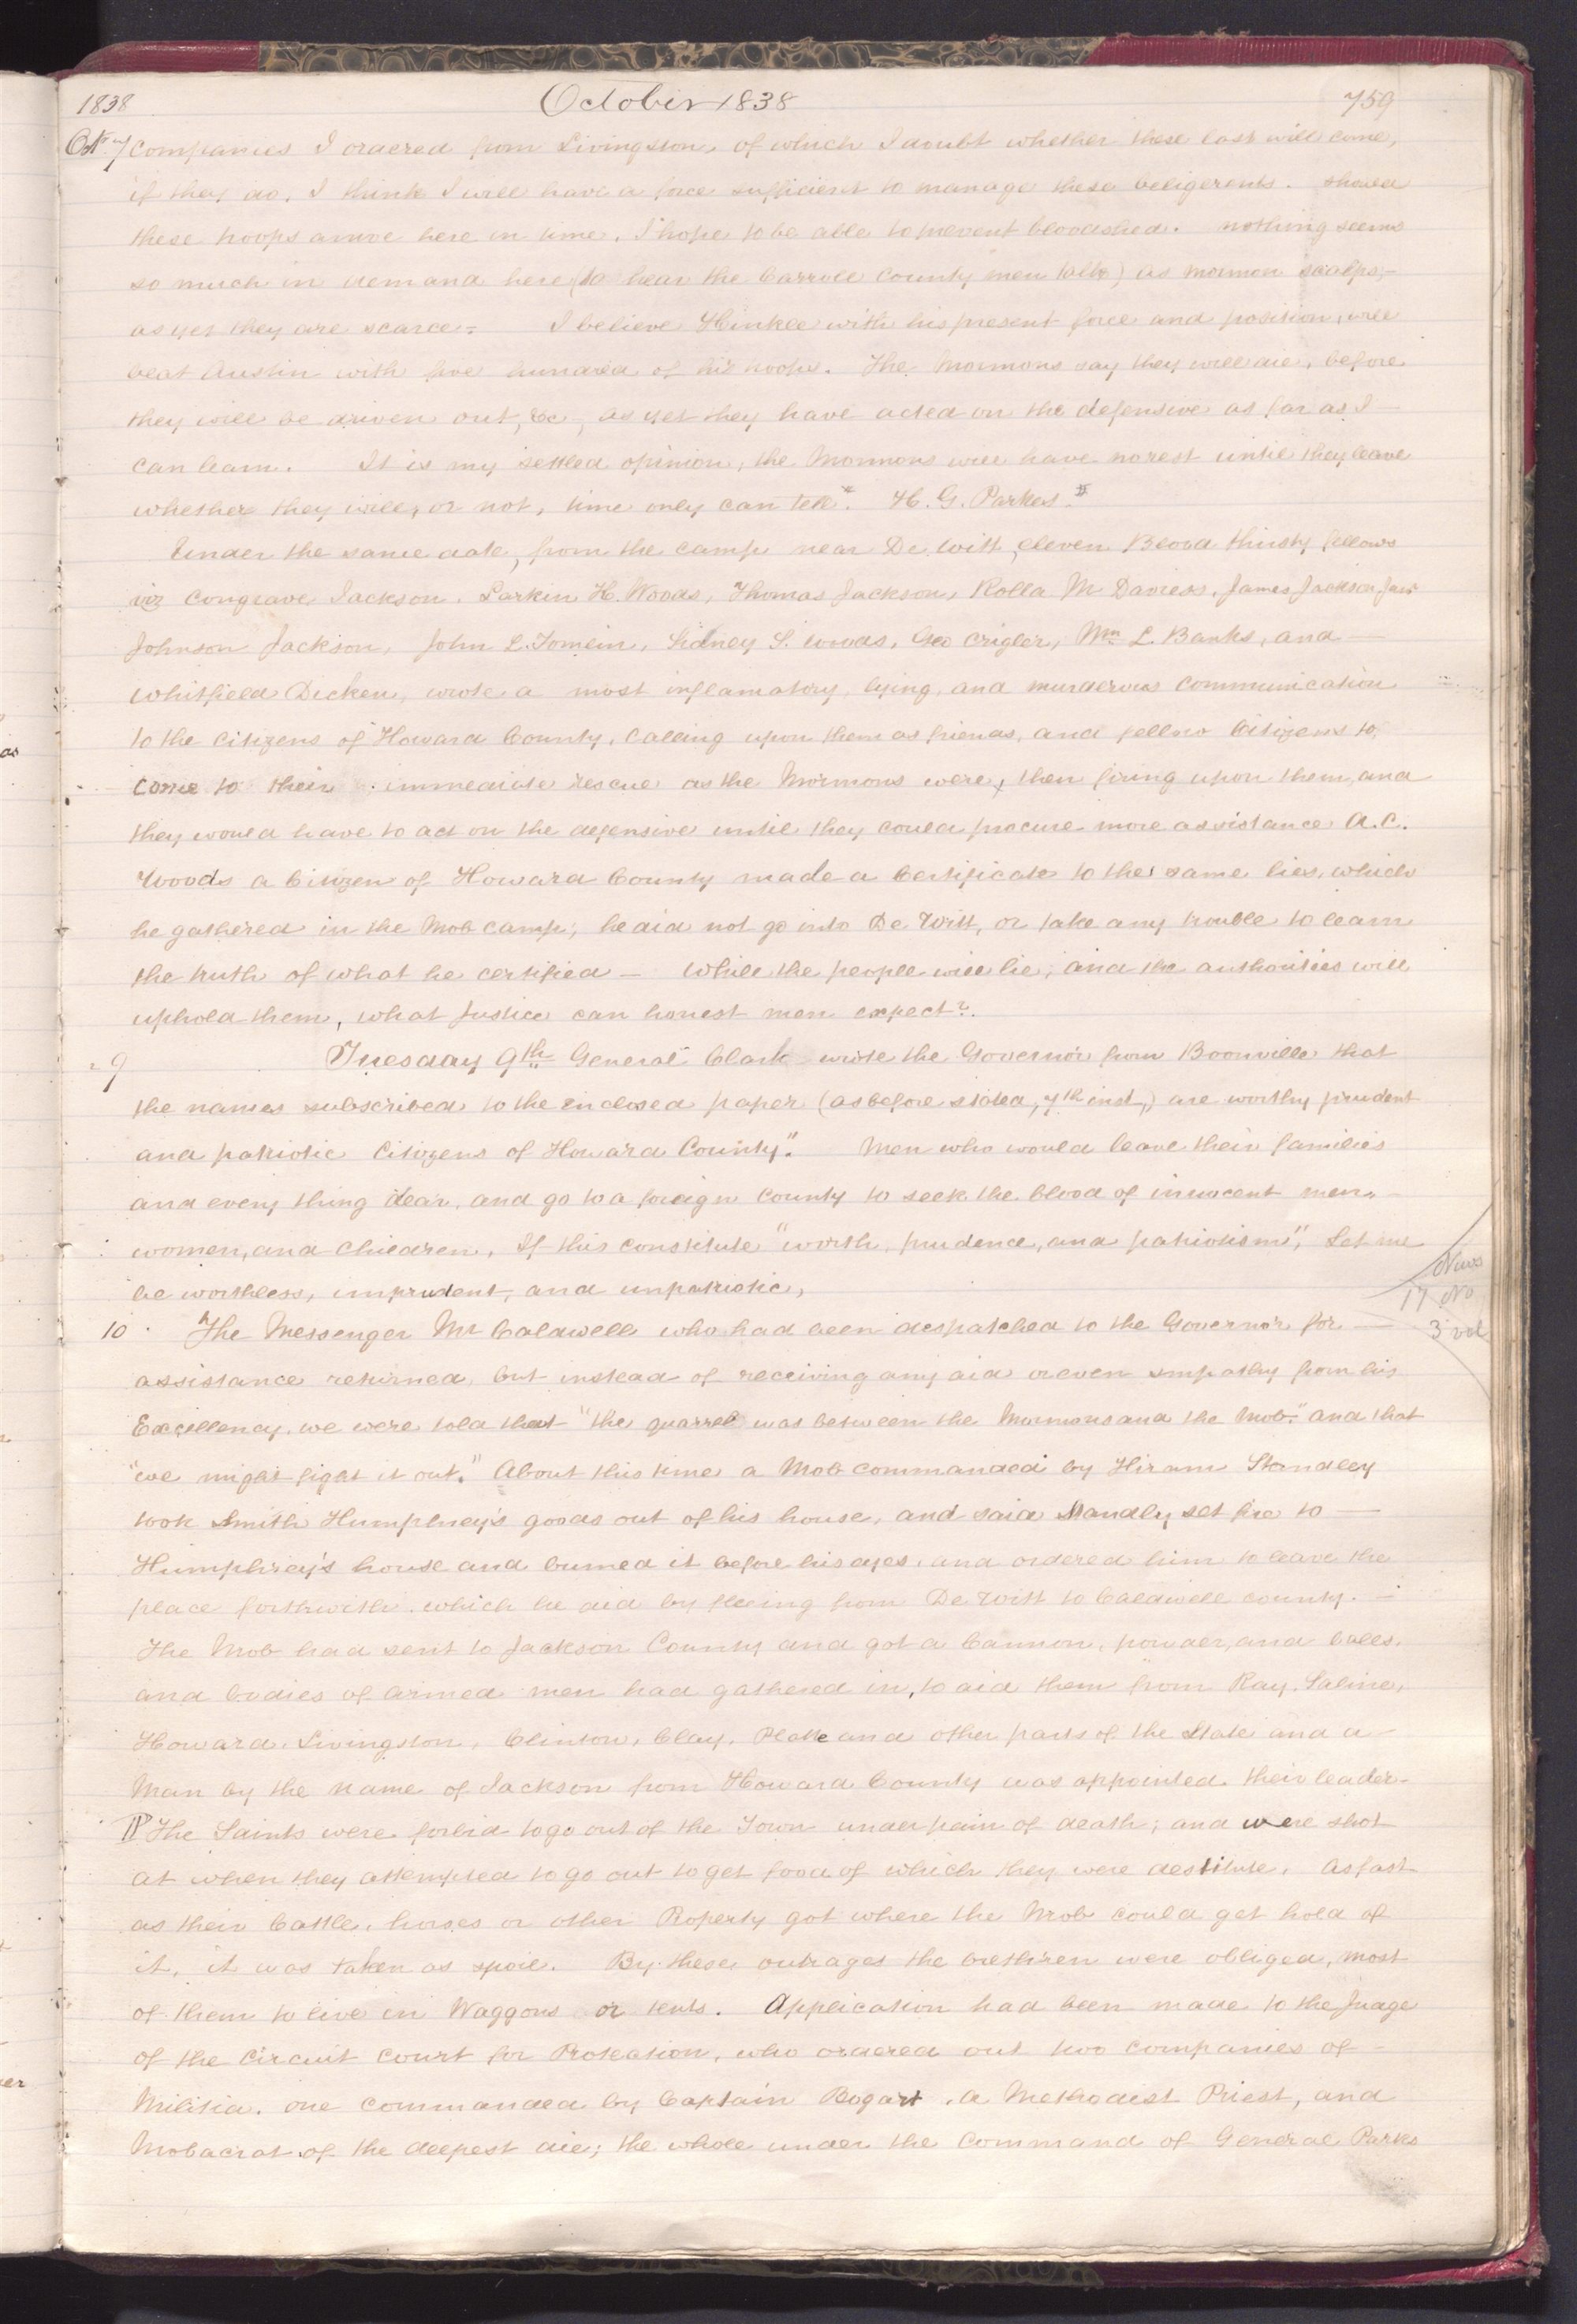 1838 October 1838 759
Oct. 7 companies I ordered from Livingston, of which I doubt whether these last will come,
if they do, I think I will have a force sufficient to manage these beligerents. should
these troops arrive here in time, I hope to be able to prevent bloodshed. nothing seems
so much in demand here (to hear the Carroll County men talk) as mormon scalps,—
as yet they are scarce— I believe Hinkle with his present force and position, will
beat Austin with five hundred of his troops. The Mormons say they will die, before
they will be driven out, &c, as yet they have acted on the defensive as far as I—
can learn. It is my settled opinion, the Mormons will have no rest until they leave
whether they will, or not, time only can tell." H. G. Parkes."
Under the same date, from the camp near De Witt, eleven Blood thirsty fellows
viz Congrave Jackson. Larkin H. Woods, Thomas Jackson, Rolla M Daviess, James Jackson Junr
Johnson Jackson, John L. Tomlin, Sidney S. woods, Geo Crigler, Wm. L. Banks, and—
Whitfield Dicken, wrote a most inflamatory, lying, and murderous communication
to the citizens of Howard County, Calling upon them as friends, and fellow Citizens to
come to their immediate rescue as the Mormons were, then firing upon them, and
they would have to act on the defensive until they could procure more assistance A. C.
Woods a Citizen of Howard County made a Certificate to the same lies, which
he gathered in the Mob camp; he did not go into De Witt, or take any trouble to learn
the truth of what he certified— While the people will lie, and the authorities will
uphold them, what Justice can honest men expect?.
" 9 Tuesday 9th General Clark wrote the Governor from Boonville that
the names subscribed to the enclosed paper (as before stated, 7th inst,) are worthy prudent
and patriotic Citizens of Howard County." Men who would leave their families
and every thing dear, and go to a foreign County to seek the blood of innocent men,
women, and Children, If this constitute "worth, prudence, and patriotism", Let me
be worthless, imprudent, and unpatriotic,
News
17 No
3 vol
10 The Messenger Mr Caldwell who had been despatched to the Governor for—
assistance returned, but instead of receiving any aid or even smpathy from his
Excellency, we were told that "the quarrel was between the Mormons and the Mob." and that
"we might fight it out." About this time a Mob commanded by Hiram Standley
took Smith Humphrey's goods out of his house, and said Standly set fire to—
Humphrey's house and burned it before his eyes, and ordered him to leave the
place forthwith, which he did by fleeing from De Witt to Caldwell county.—
The Mob had sent to Jackson County and got a Cannon, powder, and balls,
and bodies of armed men had gathered in, to aid them from Ray, Saline,
Howard, Livingston, Clinton, Clay, Platte and other parts of the State and a—
Man by the name of Jackson from Howard County was appointed their leader—
¶ The Saints were forbid to go out of the Town under pain of death; and were shot
at when they attempted to go out to get food of which they were destitute. As fast
as their Cattle, horses or other Property got where the Mob could get hold of
it, it was taken as spoil. By these outrages the brethren were obliged, most
of them to live in Waggons or tents. Application had been made to the Judge
of the Circuit Court for Protection, who ordered out two companies of—
Militia. one commanded by Captain Bogart, a Methodist Priest, and
Mobacrat of the deepest die; the whole under the Command of General Parks
as
er